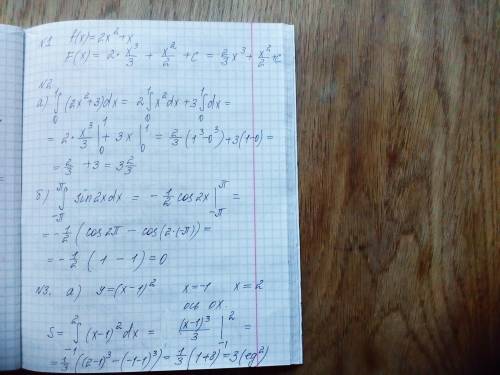 №1 f(x)=2x²+x
F(x) = 2·x³/3 + x²/2 + C = 2/3 x³ + x²/2 + C
№2
а) ∫₀¹ (2x²+3)dx = 2∫₀¹ x²dx + 3∫₀¹ dx =
= 2·x³/3 |₀¹ + 3x |₀¹ = 2/3 (1³-0³)+3(1-0) =
= 2/3 + 3 = 3 2/3
б) ∫_{-π}^{π} sin2xdx = -1/2 cos2x |_{-π}^{π} =
= -1/2 (cos2π - cos(2·(-π)) =
= -1/2 (1 - 1) = 0
№3. а) y=(x-1)² x=-1 x=2
ось ox.
S= ∫_{-1}^{2} (x-1)²dx = (x-1)³/3 |_{-1}^{2} =
= 1/3 ((2-1)³-(-1-1)³) = 1/3 (1+8) = 3 (ед²)